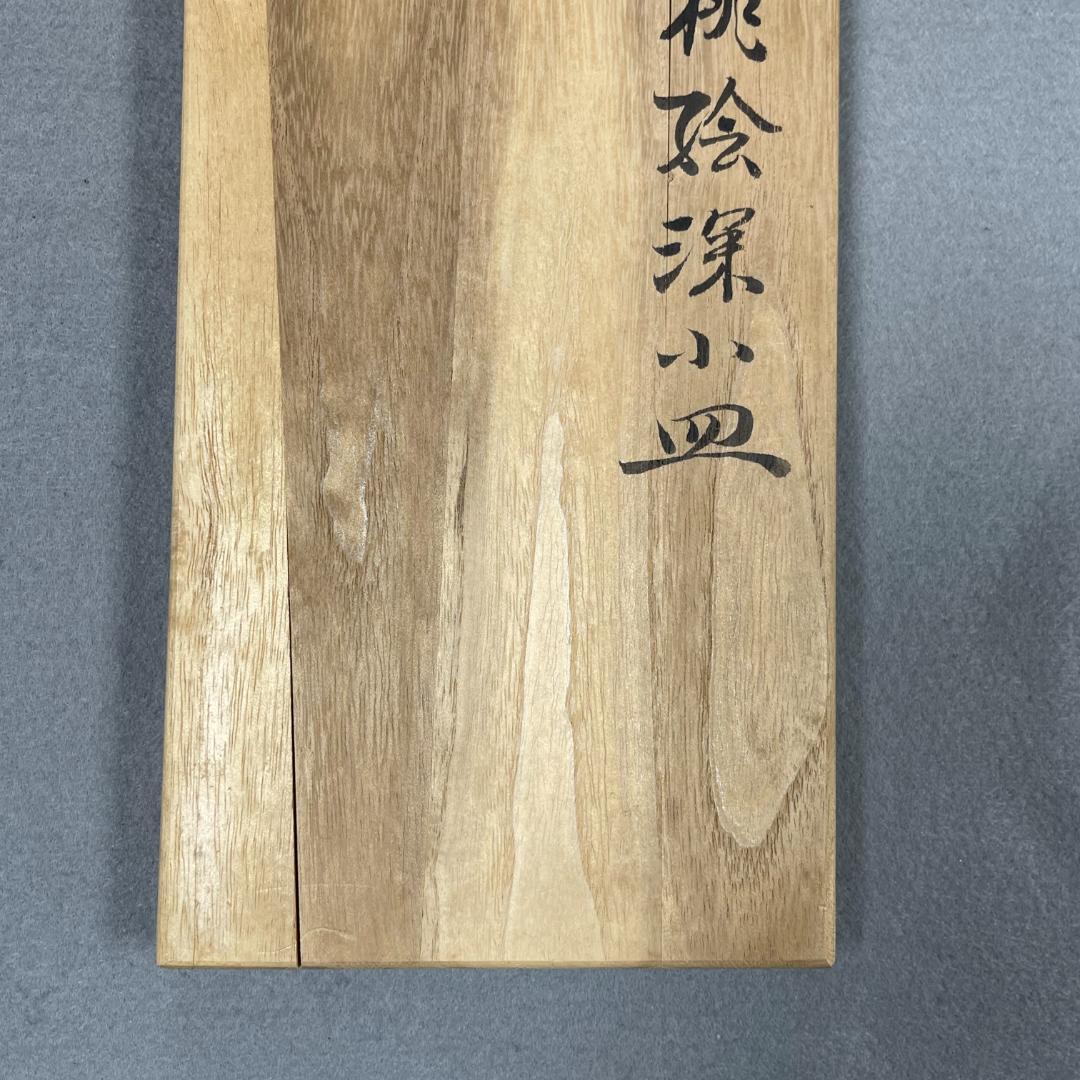 桃絵深小皿